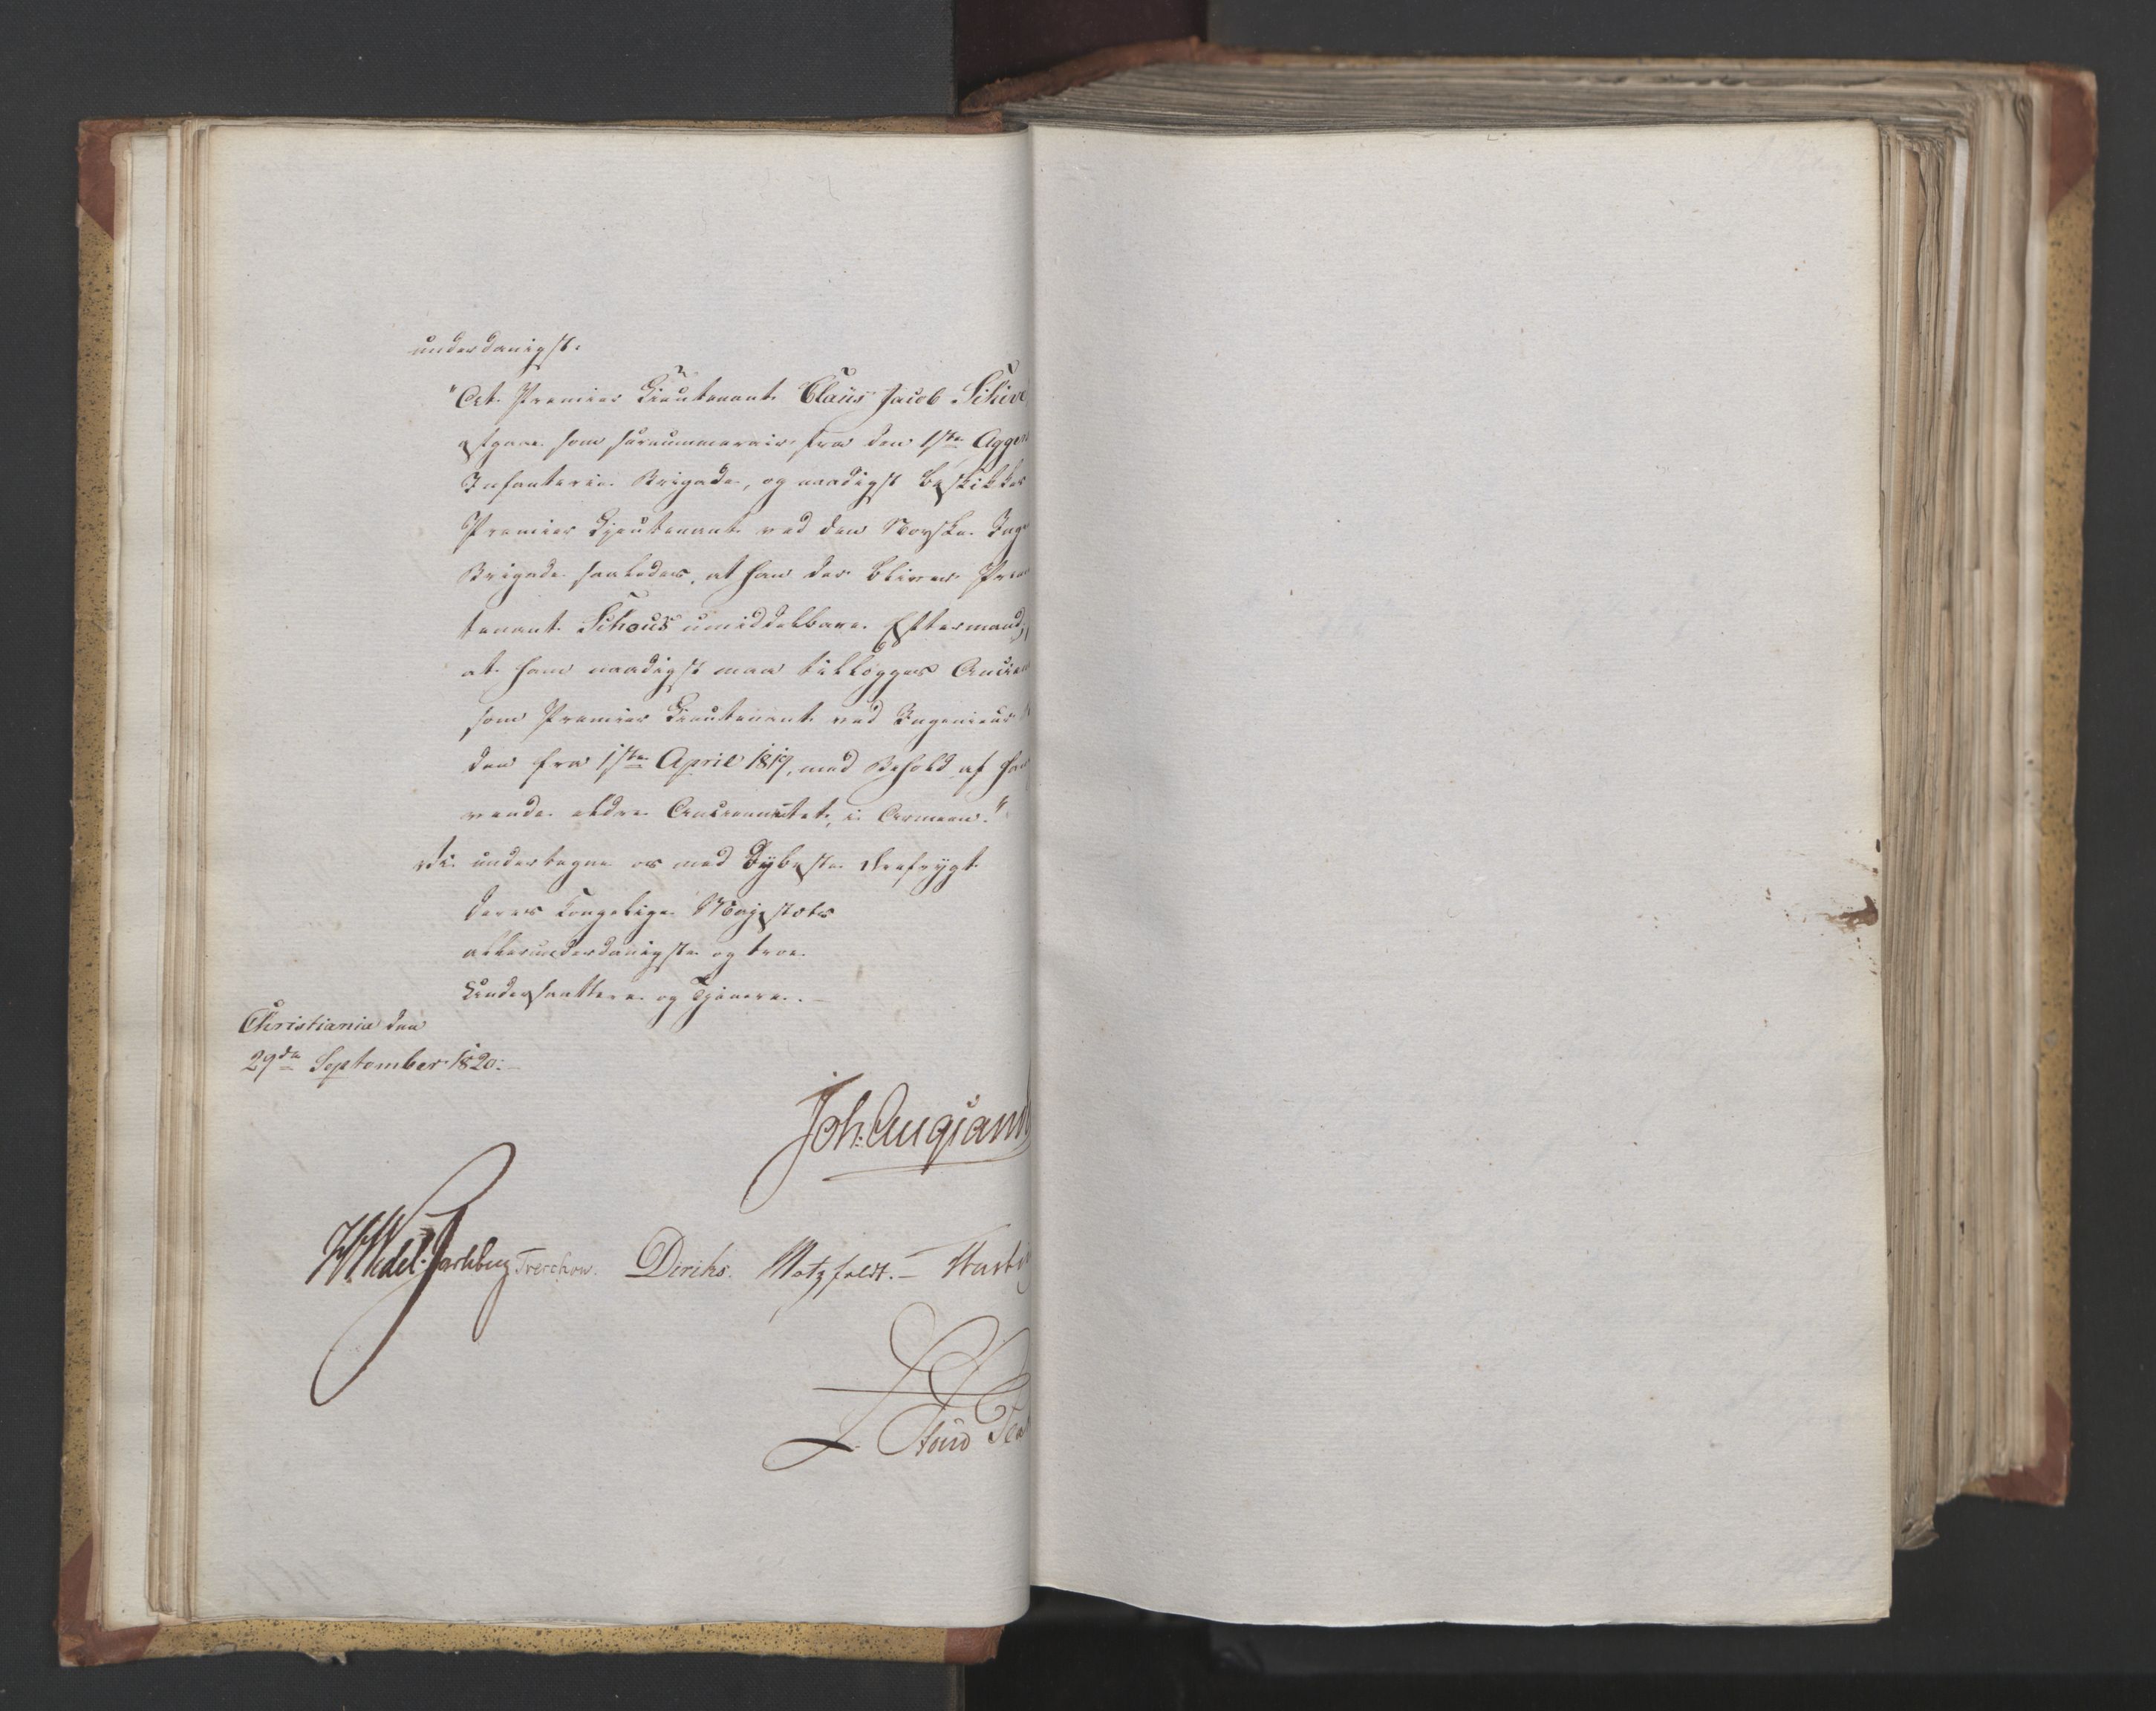 underdanigst:
"At Premier Lieutenant Claus Jacob Schive
afgaaer som surnummerair fra den 1ste Agger
Infanterie Brigade, og naadigst beskikkes
Premier Lieutenant ved den Norske Inge
Brigade saaledes, at han der bliver Prem
tenant Schous umiddelbare Eftermand,
at ham naadigst maa tillægges Ancien
som Premier Lieutenant ved Ingenieur
den fra 1ste April 1817, med Behold af ha
vende ældre Anciennitet i Armeen."
Vi undertegne os med dybeste Ærefrygt
Deres Kongelige Majestæts
allerunderdanigste og troe
Undersaatter og Tjenere.
Christiania den
29de September 1820.
Joh. Aug: Sand
H Wedel-Jarlsberg Treschow. Diriks. Motzfeldt. –